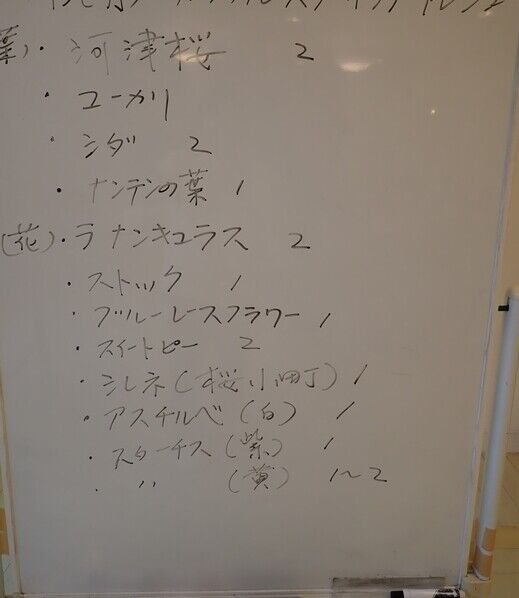 (葉)・河津桜 2
・ユーカリ
・シダ 2
・ナンテンの葉 1
(花)・ラナンキュラス 2
・ストック 1
・ブルーレースフラワー 1
・スイートピー 2
・シレネ(桜小町) 1
・アスチルベ(白) 1
・スターチス(紫) 1
・〃 (黄) 1～2